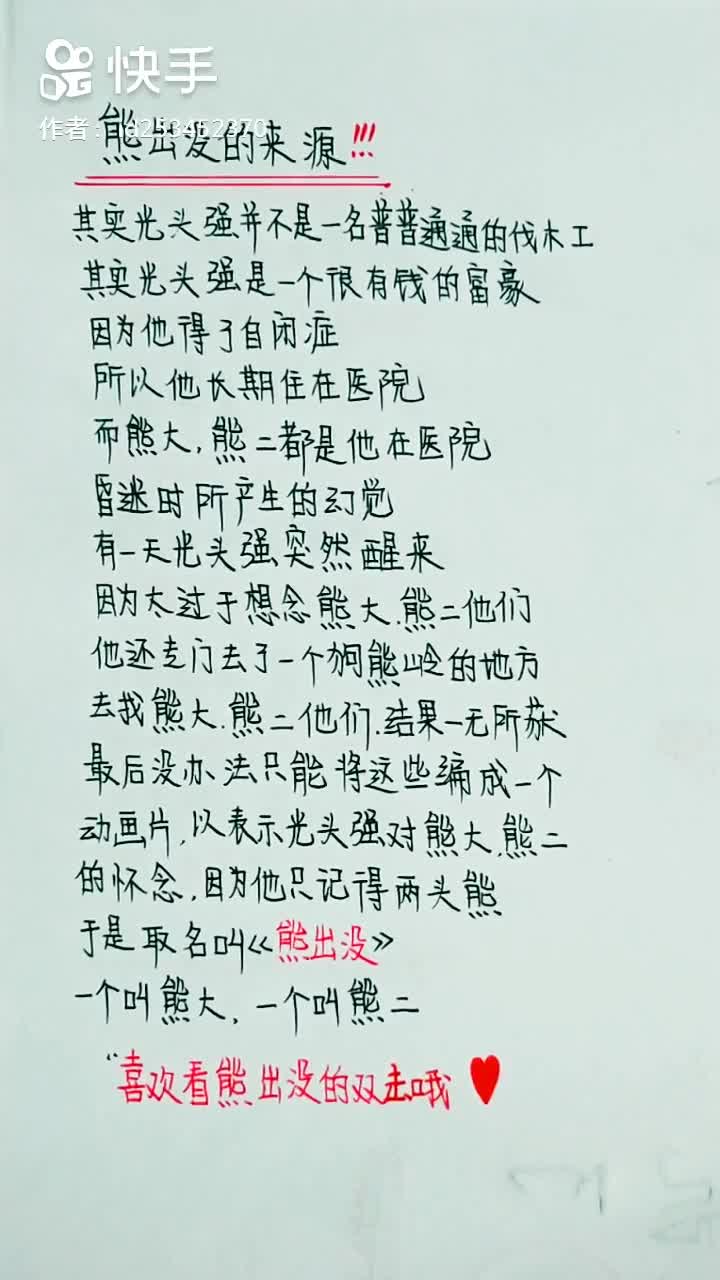 快手
作者：
熊出没的来源!!!
其实光头强并不是一名普普通通的伐木工
其实光头强是一个很有钱的富豪
因为他得了自闭症
所以他长期住在医院
而熊大,熊二都是他在医院
昏迷时所产生的幻觉
有一天光头强突然醒来
因为太过于想念熊大.熊二他们
他还专门去了一个狗熊岭的地方
去找熊大.熊二他们.结果一无所获
最后没办法只能将这些编成一个
动画片,以表示光头强对熊大.熊二
的怀念,因为他只记得两头熊
于是取名叫《熊出没》
一个叫熊大,一个叫熊二
“喜欢看熊出没的双击哦♥